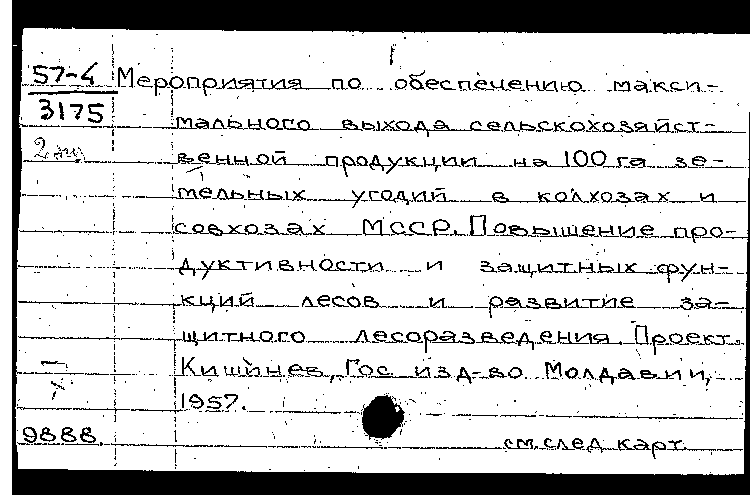 57-4 Мероприятия по обеспечению макси-
3175
мального выхода сельскохозяйст-
2
венной продукции на 100 га зе-
мельных угодий в колхозах и
совхозах МССР. Повышение про-
дуктивности и защитных фун-
кций лесов и развитие за-
щитного лесоразведения. Проект.
Кишинев, Гос изд-во Молдавии,
1957.
9888.
см. след карт.